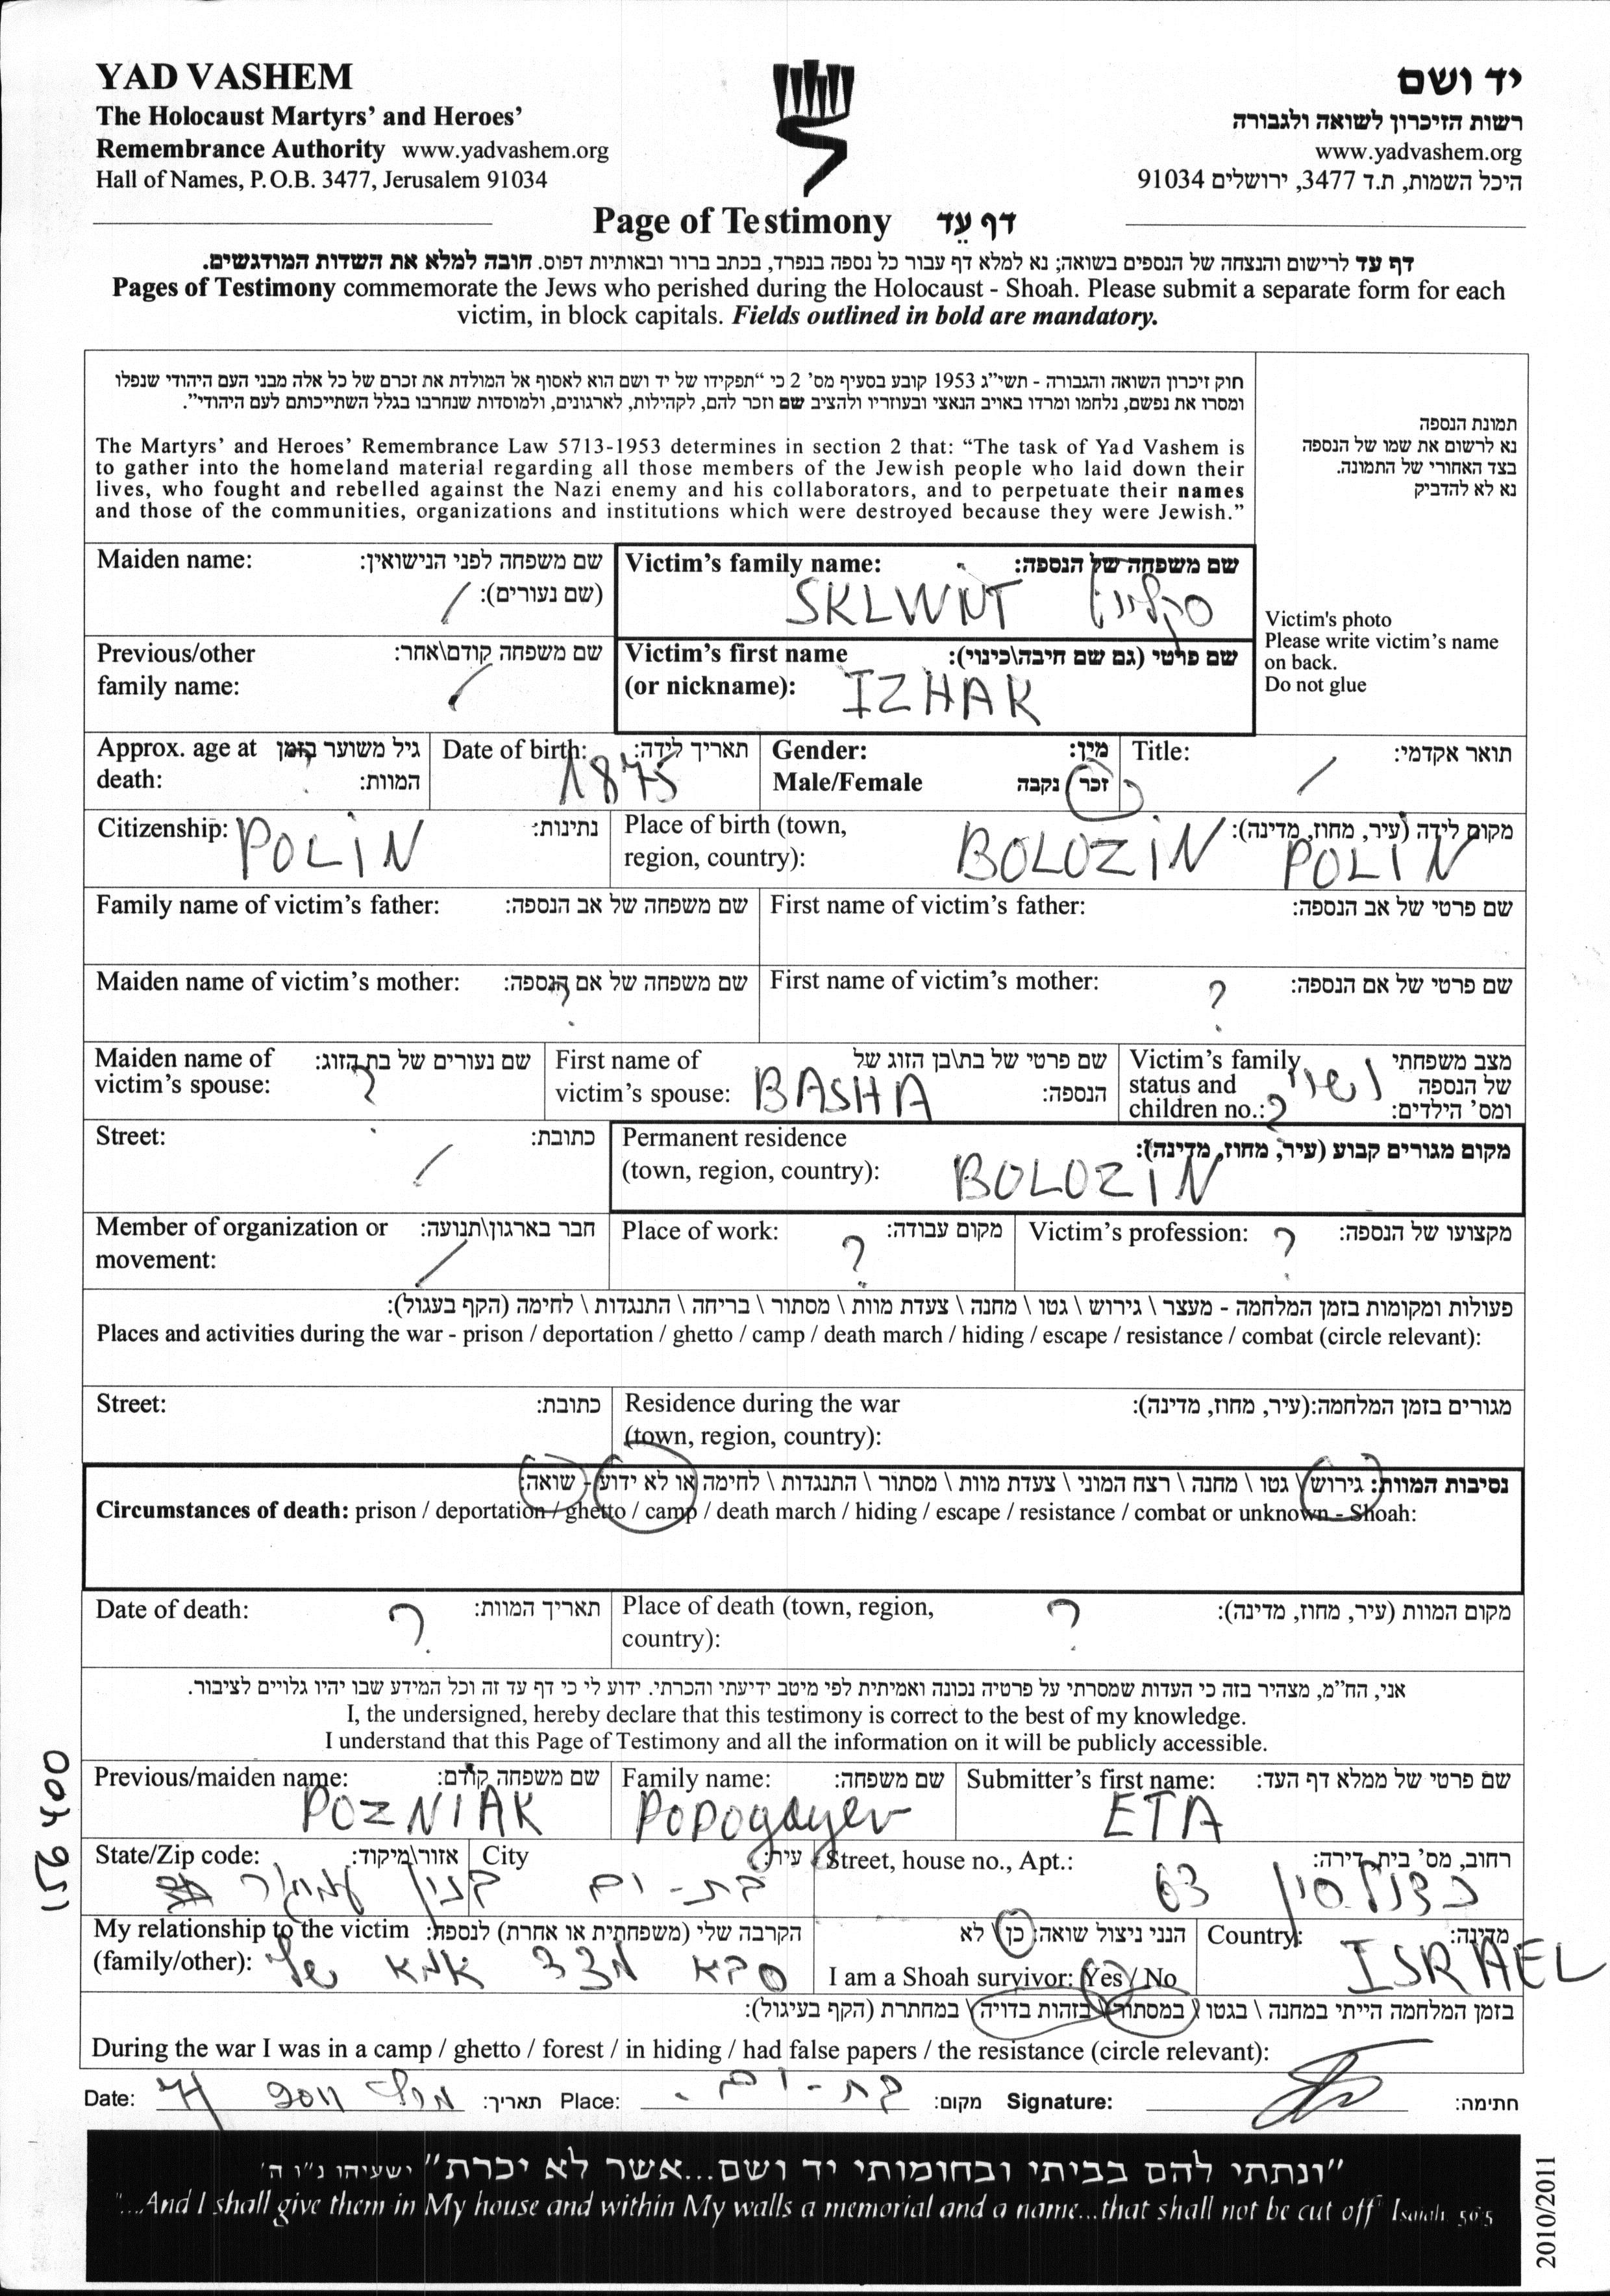 YAD VASHEM
The Holocaust Martyrs’ and Heroes’
Remembrance Authority www.yadvashem.org
Hall of Names, P.O.B. 3477, Jerusalem 91034
יד ושם
רשות הזיכרון לשואה ולגבורה
www.yadvashem.org
היכל השמות, ת.ד 3477, ירושלים 91034
Page of Testimony דף עֵד
דף עד לרישום והנצחה של הנספים בשואה; נא למלא דף עבור כל נספה בנפרד, בכתב ברור ובאותיות דפוס. חובה למלא את השדות המודגשים.
Pages of Testimony commemorate the Jews who perished during the Holocaust - Shoah. Please submit a separate form for each
victim, in block capitals. Fields outlined in bold are mandatory.
חוק זיכרון השואה והגבורה - תשי״ג 1953 קובע בסעיף מס׳ 2 כי “תפקידו של יד ושם הוא לאסוף אל המולדת את זכרם של כל אלה מבני העם היהודי שנפלו
ומסרו את נפשם, נלחמו ומרדו באויב הנאצי ובעוזריו ולהציב שם וזכר להם, לקהילות, לארגונים, ולמוסדות שנחרבו בגלל השתייכותם לעם היהודי”.
The Martyrs’ and Heroes’ Remembrance Law 5713-1953 determines in section 2 that: “The task of Yad Vashem is
to gather into the homeland material regarding all those members of the Jewish people who laid down their
lives, who fought and rebelled against the Nazi enemy and his collaborators, and to perpetuate their names
and those of the communities, organizations and institutions which were destroyed because they were Jewish.”
תמונת הנספה
נא לרשום את שמו של הנספה
בצד האחורי של התמונה.
נא לא להדביק
Victim's photo
Please write victim’s name
on back.
Do not glue
Maiden name: שם משפחה לפני הנישואין:
(שם נעורים): /
Victim’s family name: שם משפחה של הנספה:
SKLWNT
Previous/other שם משפחה קודם\אחר:
family name: /
Victim’s first name שם פרטי (גם שם חיבה\כינוי):
(or nickname): IZHAK
Approx. age at גיל משוער בזמן
death: המוות: ?
Date of birth: תאריך לידה:
1875
Gender: מין:
Male/Female זכר נקבה
Title: תואר אקדמי:
/
Citizenship: POLIN נתינות:
Place of birth (town, מקום לידה (עיר, מחוז, מדינה):
region, country): BOLOZIN POLIN
Family name of victim’s father: שם משפחה של אב הנספה:
First name of victim’s father: שם פרטי של אב הנספה:
Maiden name of victim’s mother: שם משפחה של אם הנספה:
?
First name of victim’s mother: שם פרטי של אם הנספה:
?
Maiden name of שם נעורים של בת הזוג:
victim’s spouse: ?
First name of שם פרטי של בת\בן הזוג של
victim’s spouse: BASHA הנספה:
Victim’s family מצב משפחתי
status and נשוי של הנספה
children no.: 2 ומס׳ הילדים:
Street: כתובת:
/
Permanent residence מקום מגורים קבוע (עיר, מחוז, מדינה):
(town, region, country): BOLOZIN
Member of organization or חבר בארגון\תנועה:
movement: /
Place of work: מקום עבודה:
?
Victim’s profession: ? מקצועו של הנספה:
פעולות ומקומות בזמן המלחמה - מעצר \ גירוש \ גטו \ מחנה \ צעדת מוות \ מסתור \ בריחה \ התנגדות \ לחימה (הקף בעגול):
Places and activities during the war - prison / deportation / ghetto / camp / death march / hiding / escape / resistance / combat (circle relevant):
Street: כתובת:
Residence during the war מגורים בזמן המלחמה:(עיר, מחוז, מדינה):
(town, region, country):
נסיבות המוות: גירוש \ גטו \ מחנה \ רצח המוני \ צעדת מוות \ מסתור \ התנגדות \ לחימה או לא ידוע - שואה:
Circumstances of death: prison / deportation / ghetto / camp / death march / hiding / escape / resistance / combat or unknown - Shoah:
Date of death: ? תאריך המוות:
Place of death (town, region, ? מקום המוות (עיר, מחוז, מדינה):
country):
אני, הח״מ, מצהיר בזה כי העדות שמסרתי על פרטיה נכונה ואמיתית לפי מיטב ידיעתי והכרתי. ידוע לי כי דף עד זה וכל המידע שבו יהיו גלויים לציבור.
I, the undersigned, hereby declare that this testimony is correct to the best of my knowledge.
I understand that this Page of Testimony and all the information on it will be publicly accessible.
Previous/maiden name: שם משפחה קודם:
POZNIAK
Family name: שם משפחה:
POPOgayev
Submitter’s first name: שם פרטי של ממלא דף העד:
ETA
State/Zip code: אזור\מיקוד:
City עיר:
בת-ים
Street, house no., Apt.: רחוב, מס׳ בית, דירה:
63
My relationship to the victim הקרבה שלי (משפחתית או אחרת) לנספה:
(family/other): סבא מצד אמא שלי
הנני ניצול שואה: כן \ לא
I am a Shoah survivor: Yes / No
Country: מדינה:
ISRAEL
בזמן המלחמה הייתי במחנה \ בגטו \ במסתור \ בזהות בדויה \ במחתרת (הקף בעיגול):
During the war I was in a camp / ghetto / forest / in hiding / had false papers / the resistance (circle relevant):
Date: 2011 תאריך: Place: בת-ים מקום: Signature: חתימה:
”ונתתי להם בביתי ובחומותי יד ושם...אשר לא יכרת” ישעיהו נ״ו ה׳
“...And I shall give them in My house and within My walls a memorial and a name...that shall not be cut off” Isaiah 56:5
156 400
2010/2011